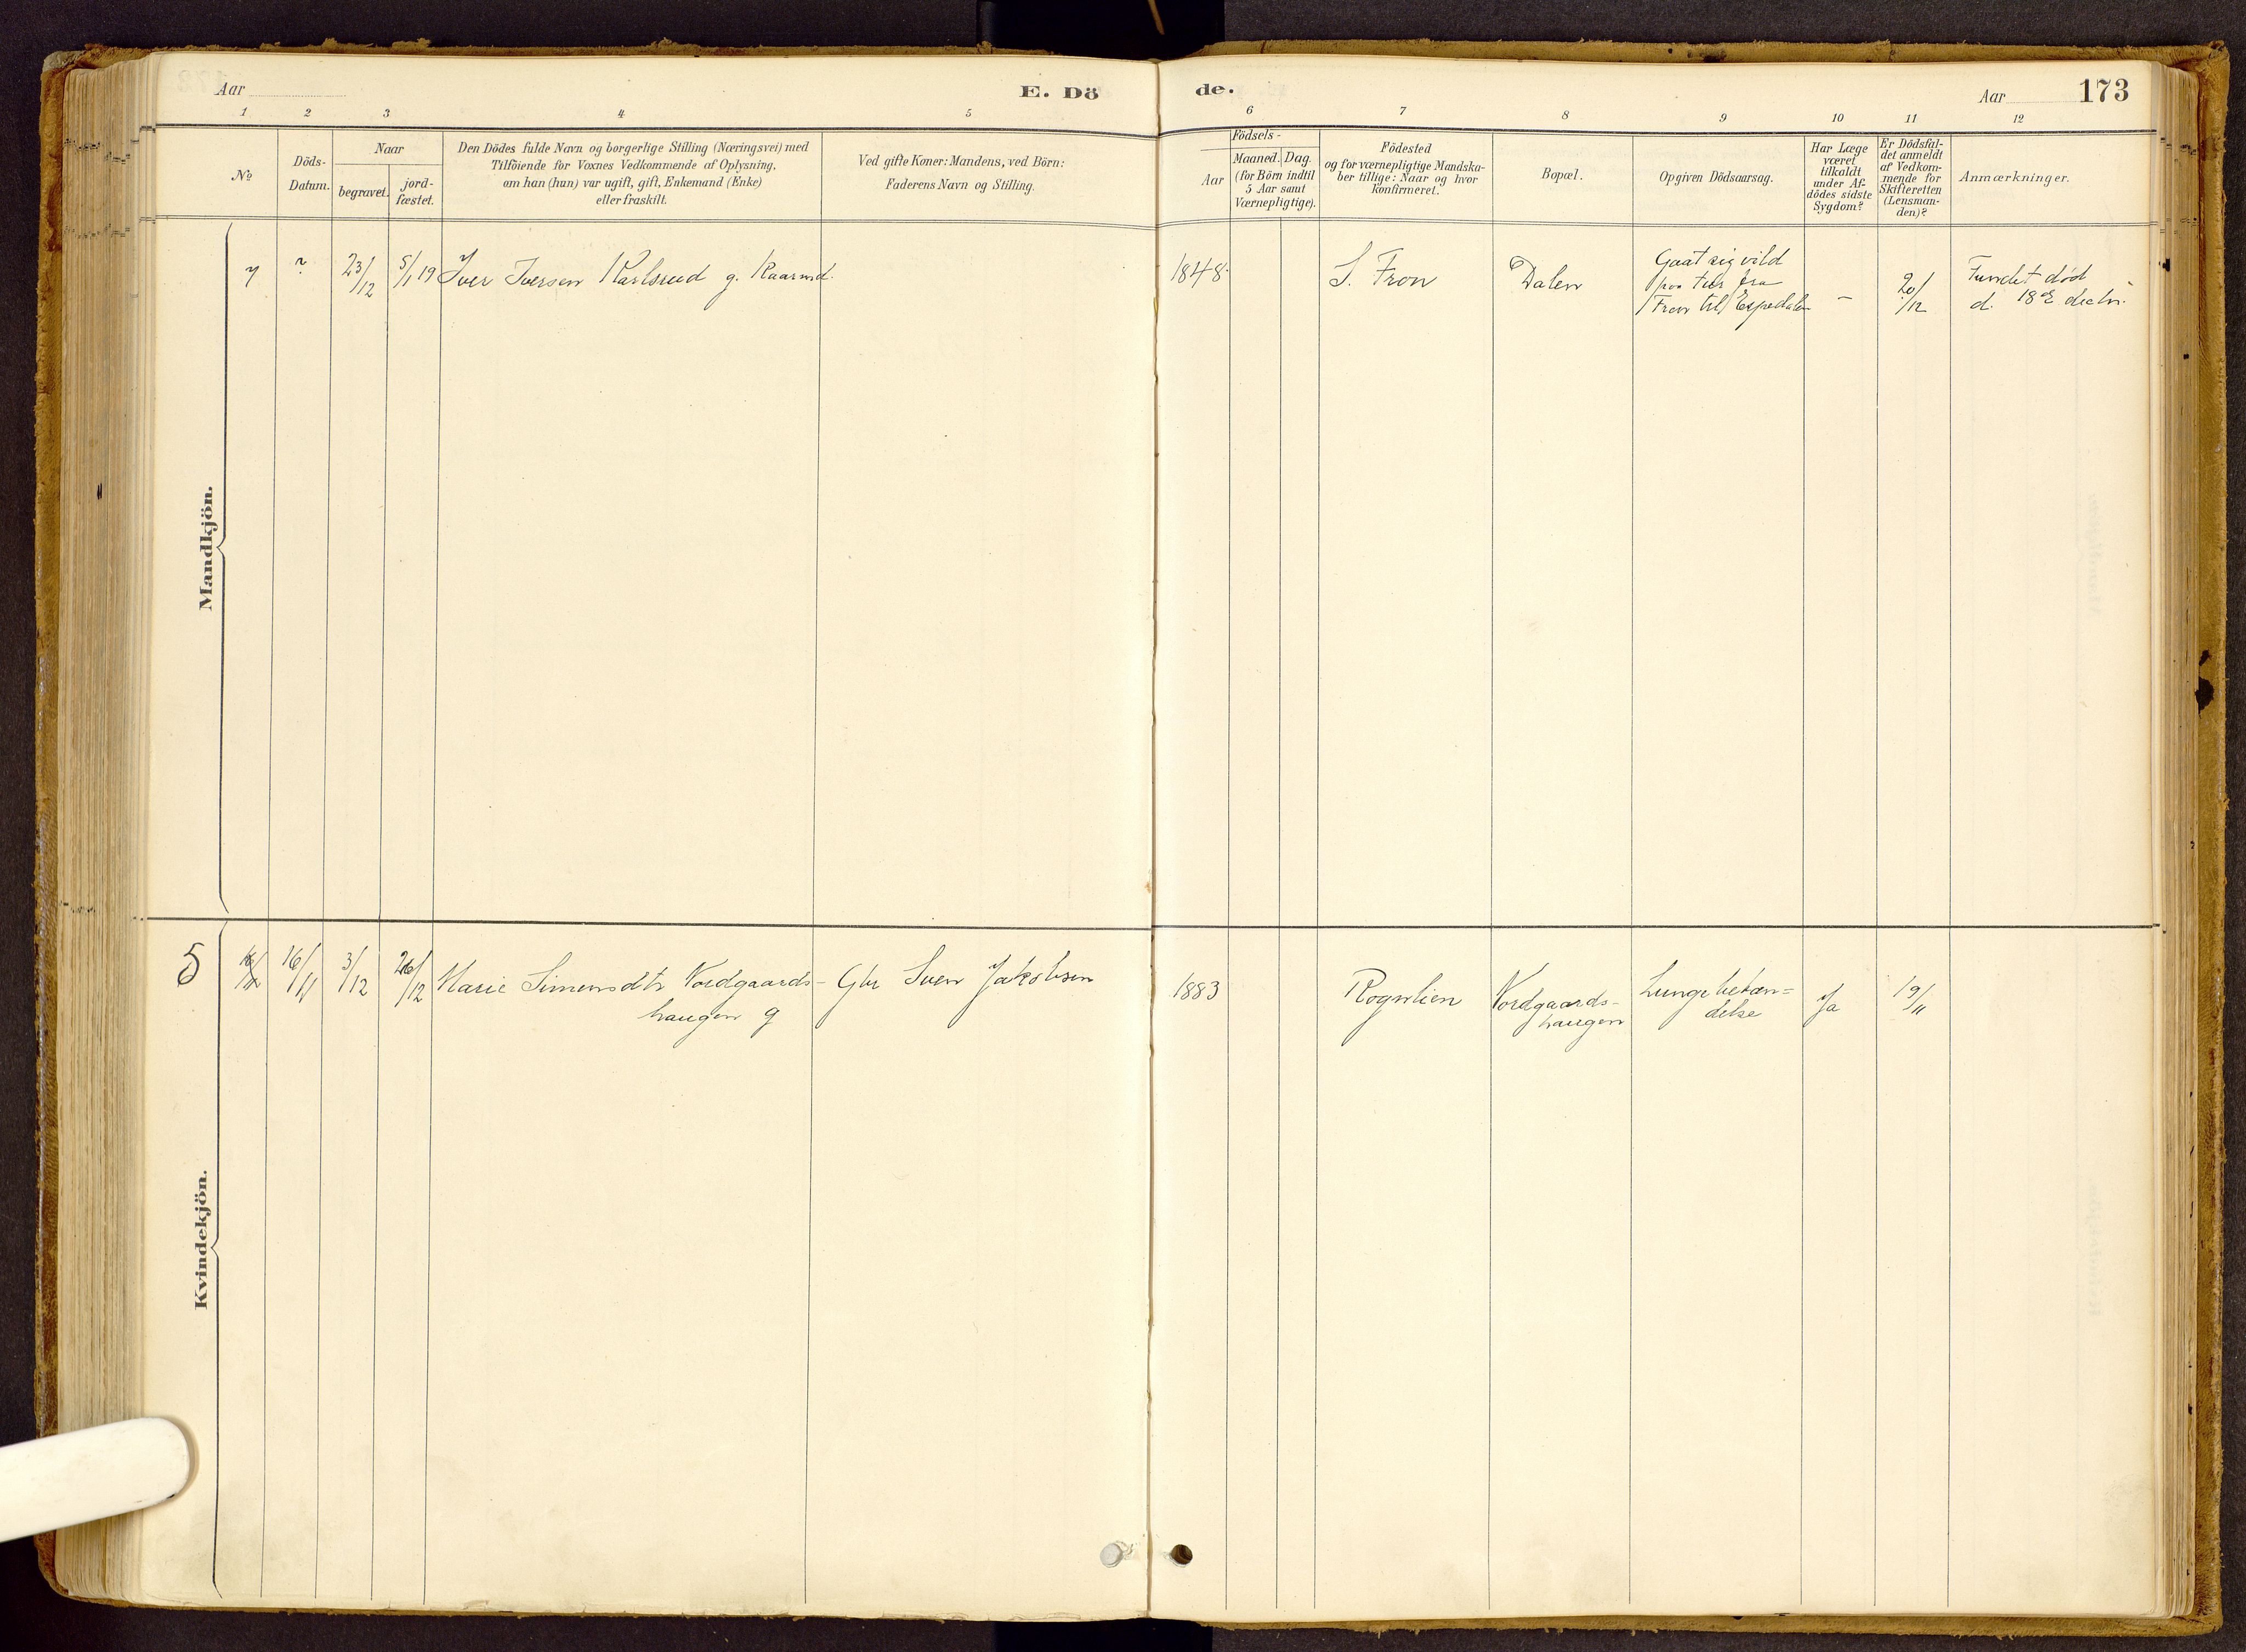 Aar
E. Dö
de.
Aar
173
1 2 3 4 5 6 7 8 9 10 11 12
№
Döds-
Datum.
Naar
begravet.
jord-
fæstet.
Den Dödes fulde Navn og borgerlige Stilling (Næringsvei) med
Tilföiende for Voxnes Vedkommende af Oplysning,
om han (hun) var ugift, gift, Enkemand (Enke)
eller fraskilt.
Ved gifte Koner: Mandens, ved Börn:
Faderens Navn og Stilling.
Födsels-
Aar
Maaned. Dag.
(for Börn indtil
5 Aar samt
Værnepligtige).
Födested
og for værnepligtige Mandska-
ber tillige: Naar og hvor
konfirmeret.
Bopæl.
Opgiven Dödsaarsag.
Har Læge
været
tilkaldt
under Af-
dödes sidste
Sygdom?
Er Dödsfal-
det anmeldt
af Vedkom-
mende for
Skifteretten
(Lensman-
den)?
Anmærkninger.
Mandkjön.
7 ? 23/12 5/1 19 Iver Iversen Karlsrud g. Kaarmd. 1848 S. Fron Dalen
Gaat sig vild
paa tur fra
Fron til Espedalen
– 20/12
Fundet död
d. 18de decbr.
Kvindekjön.
5 16/11 3/12 26/12 Marie Simensdtr Nordgaards-
haugen g
Gbr Sven Jakobsen 1883 Rognlien
Nordgaards-
haugen
Lungebetæn=
delse
Ja 19/11